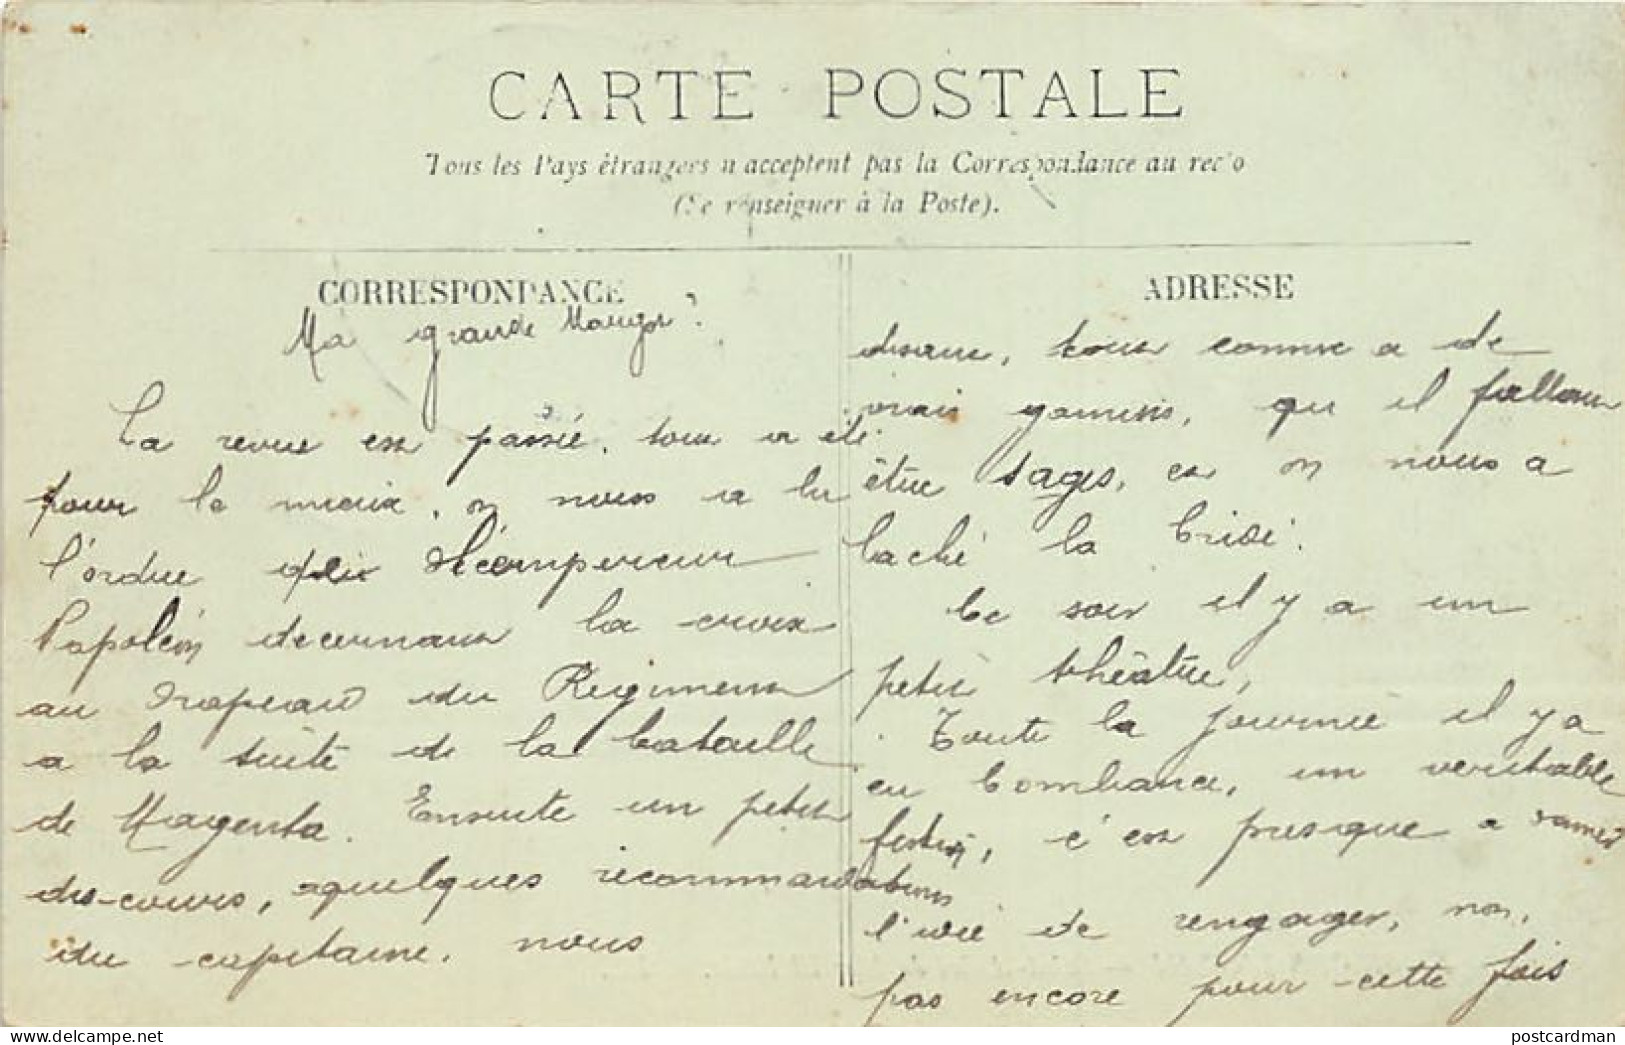 CARTE POSTALE
Tous les Pays étrangers n'acceptent pas la Correspondance au recto
(Se renseigner à la Poste).
CORRESPONDANCE
Ma grande
La revue est passée, tout a été
pour le mieux, on nous a lu
l'ordre de l'empereur
Napoléon decernant la croix
au drapeau du Regiment
a la suite de la bataille
de Magenta. Ensuite un petit
discours, quelques recommandations
du capitaine, nous
ADRESSE
disant, tout comme a de
vrais gamins, qu il fallait
être sages, et on nous a
laché la bride.
Ce soir il y a un
petit théâtre,
Toute la journée il y a
eu bombance, un veritable
festin, c'est presque a
l'envie de rengager, non,
pas encore pour cette fois
postcardman